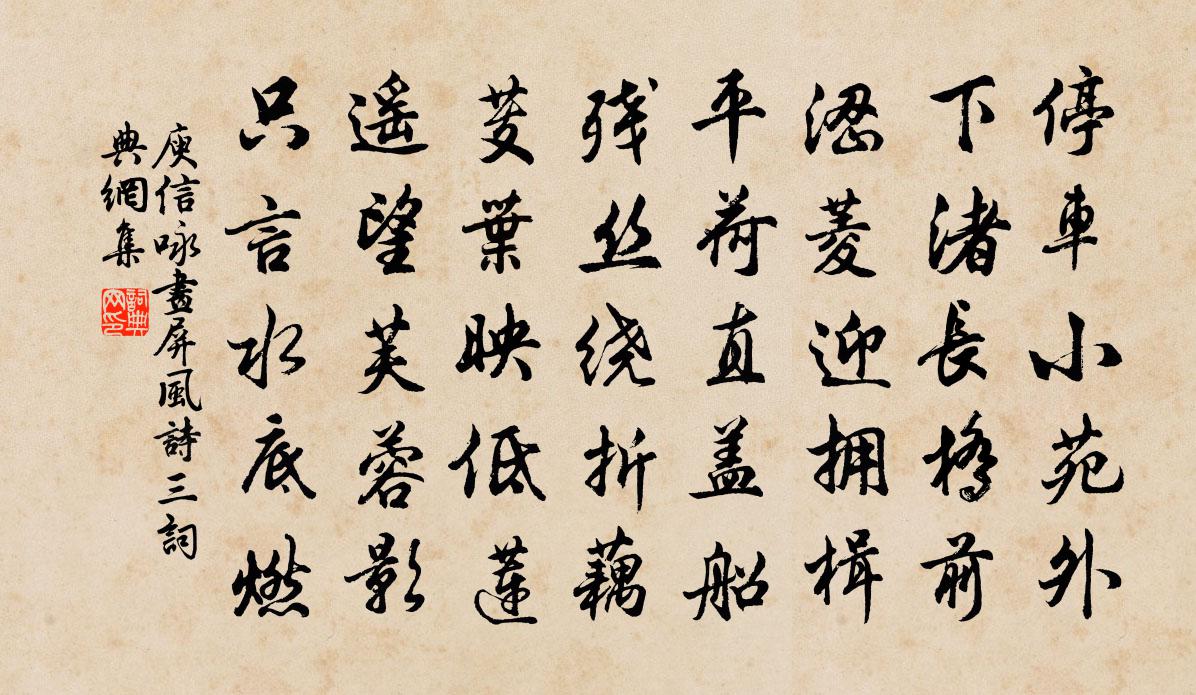 停車小苑外
下渚長橋前
涩菱迎拥楫
平荷直盖船
残丝绕折藕
芰葉映低蓮
遥望芙蓉影
只言水底燃
庾信咏畫屏風詩三詞
典網集
詞典
网印